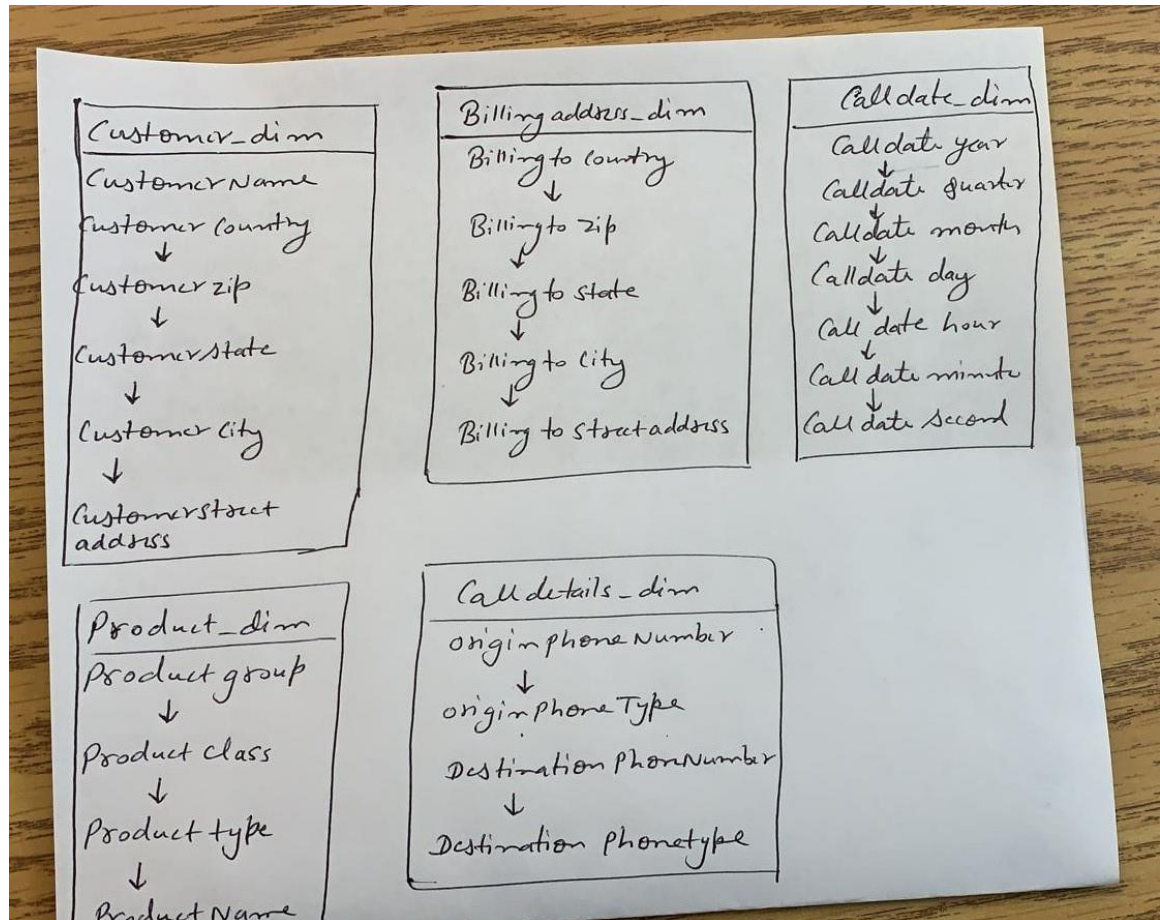 Customer_dim
CustomerName
Customer Country
↓
Customer zip
↓
Customer state
↓
Customer City
↓
Customer street
address
Billing address_dim
Billing to Country
↓
Billing to zip
↓
Billing to state
↓
Billing to City
↓
Billing to street address
Call date_dim
Call date year
↓
Call date quarter
↓
Call date month
↓
Call date day
↓
Call date hour
↓
Call date minute
↓
Call date second
Product_dim
Product group
↓
Product Class
↓
Product type
↓
Product Name
Call details_dim
origin phone Number
↓
origin Phone Type
Destination PhonNumber
↓
Destination Phonetype